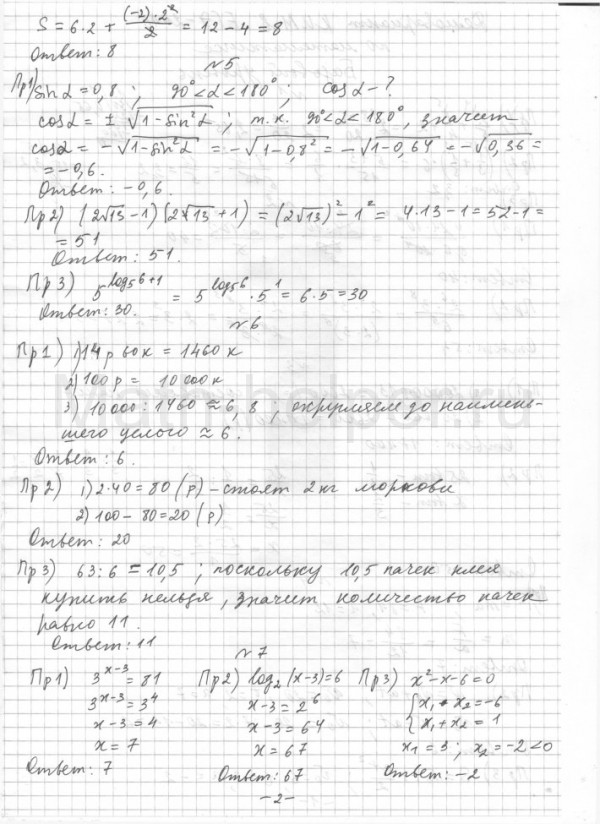 S = 6·2 + (-2)·2²/2 = 12 - 4 = 8
Ответ: 8
№5
Пр1) sin α = 0,8 ; 90° < α < 180° ; cos α - ?
cos α = ± √(1-sin²α) ; т.к. 90° < α < 180°, значит
cos α = -√(1-sin²α) = -√(1-0,8²) = -√(1-0,64) = -√0,36 =
= -0,6.
Ответ: -0,6.
Пр2) (2√13 - 1)(2√13 + 1) = (2√13)² - 1² = 4·13 - 1 = 52-1 =
= 51
Ответ: 51.
Пр3) 5^(log₅6+1) = 5^(log₅6) · 5¹ = 6·5 = 30
Ответ: 30.
№6
Пр1) 1) 14р 60к = 1460к
2) 100р = 10 000к
3) 10000 : 1460 ≈ 6,8 , округляем до наимень-
шего целого ≈ 6.
Ответ: 6.
Пр2) 1) 2·40 = 80 (р) - стоят 2 кг моркови
2) 100 - 80 = 20 (р)
Ответ: 20
Пр3) 63 : 6 = 10,5 ; поскольку 10,5 пачек клея
купить нельзя, значит количество пачек
равно 11.
Ответ: 11
№7
Пр1) 3^(x-3) = 81
3^(x-3) = 3⁴
x-3 = 4
x = 7
Ответ: 7
Пр2) log₂(x-3) = 6
x-3 = 2⁶
x-3 = 64
x = 67
Ответ: 67
Пр3) x² - x - 6 = 0
{ x₁ · x₂ = -6
{ x₁ + x₂ = 1
x₁ = 3 ; x₂ = -2 < 0
Ответ: -2
- 2 -